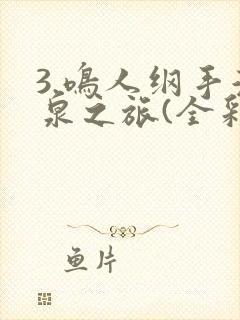 3.鸣人纲手
泉之旅(全彩
鱼片